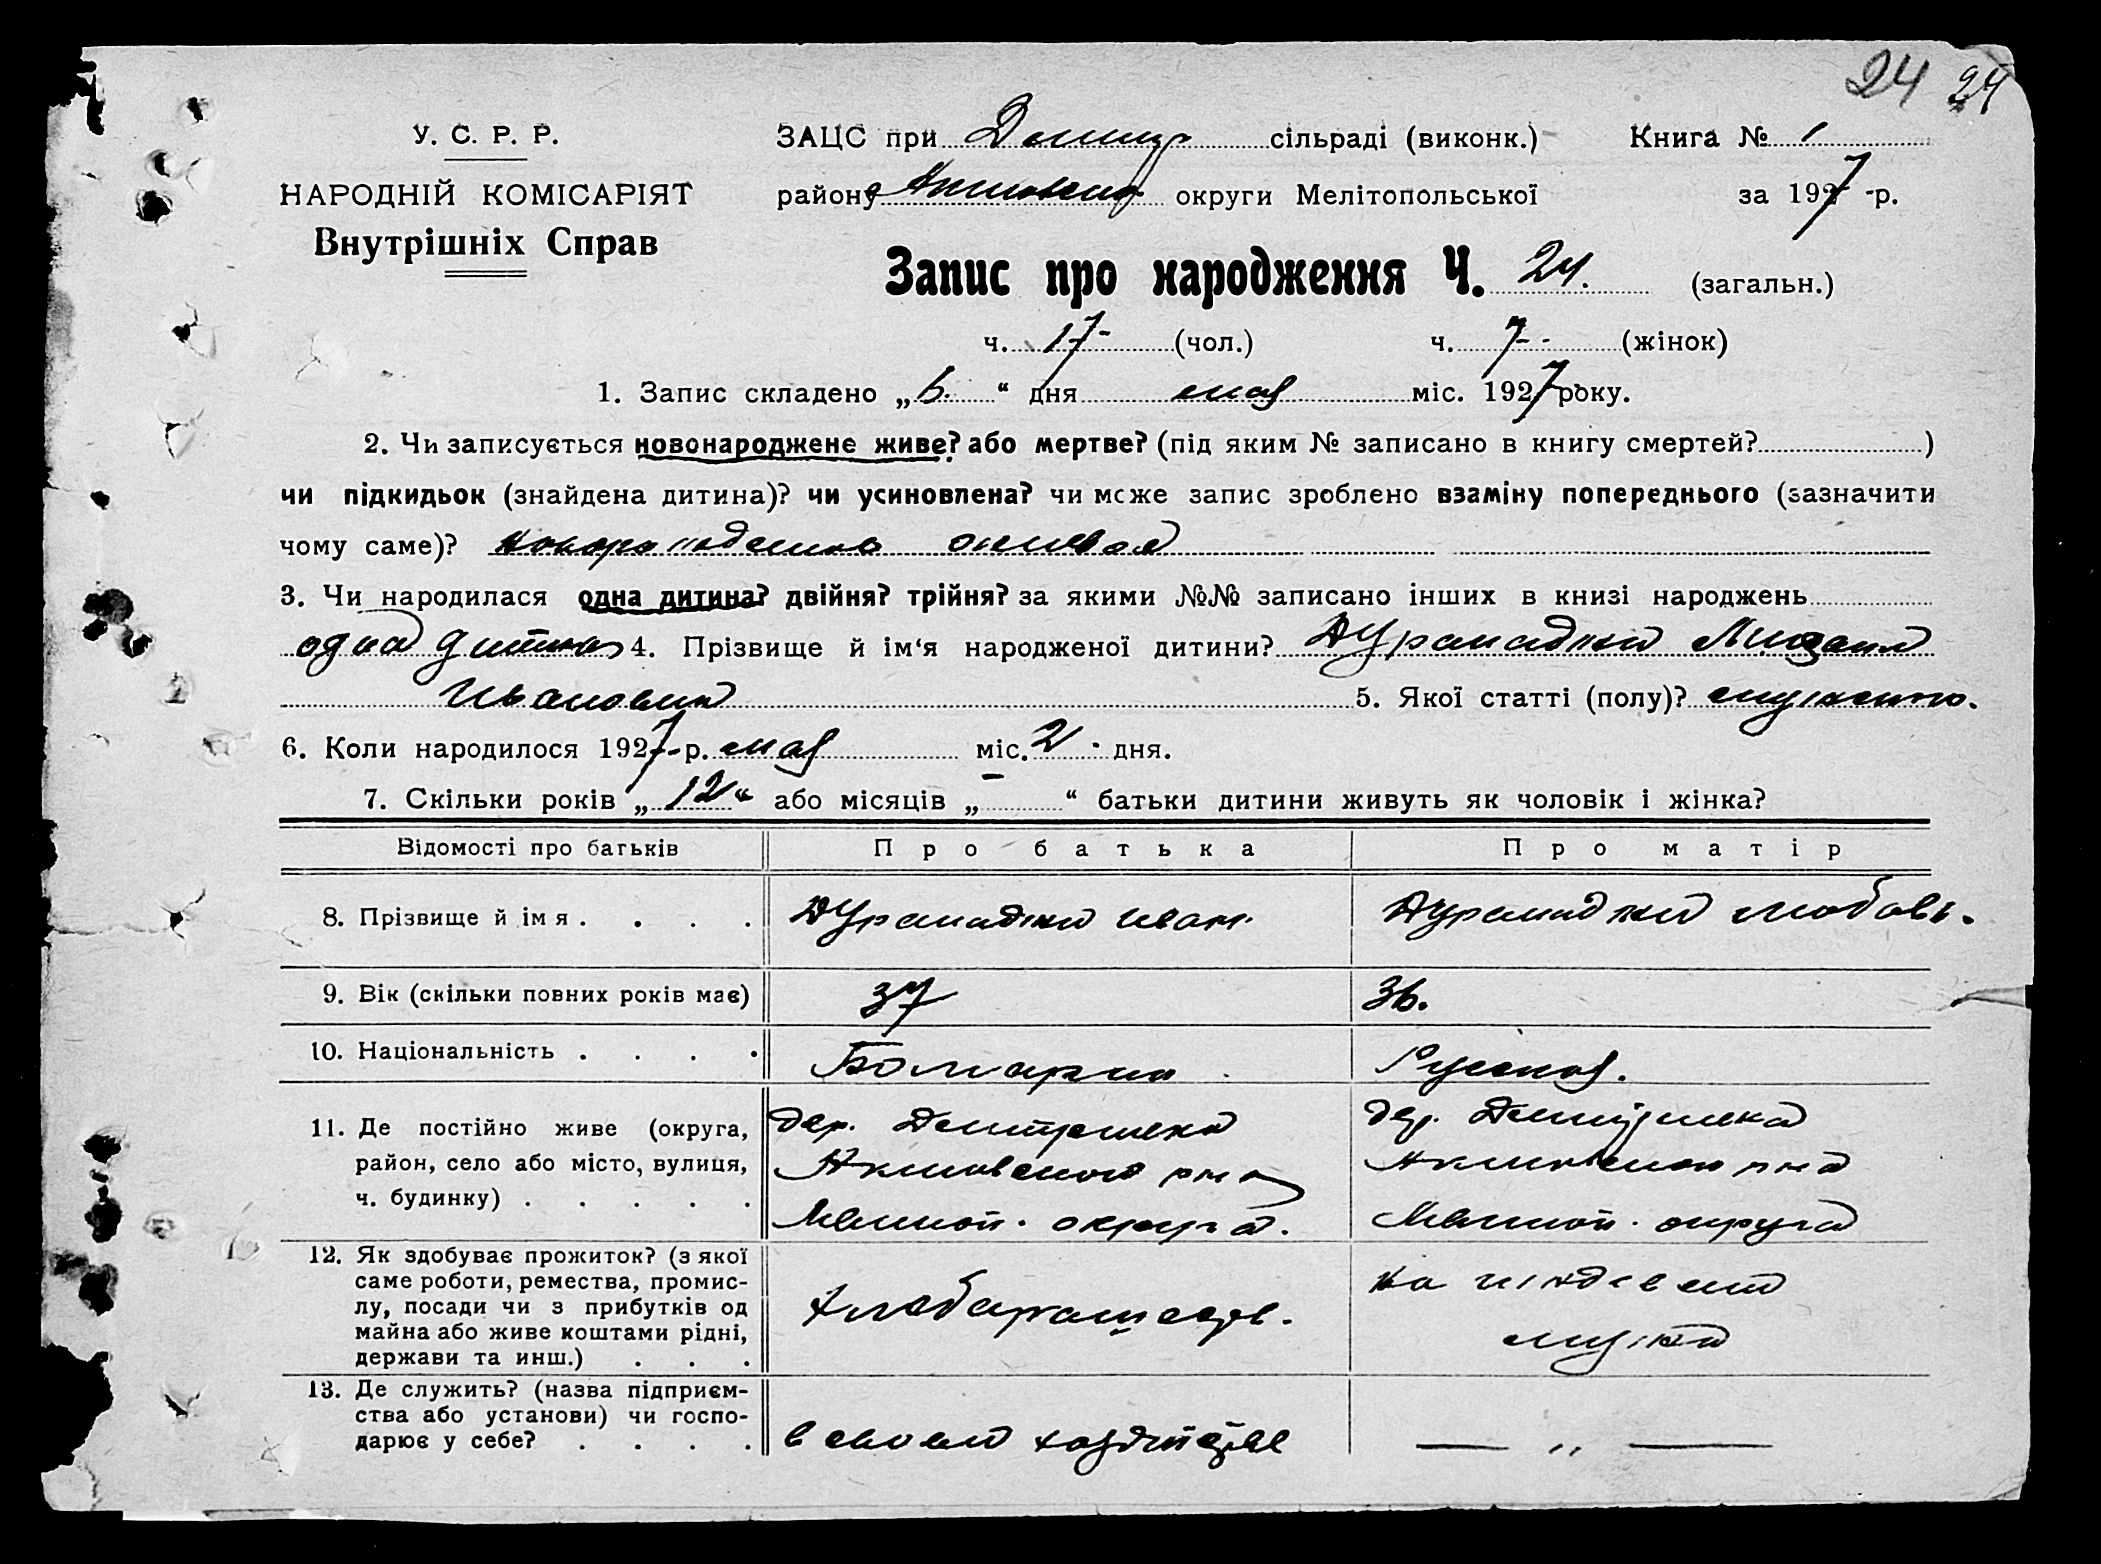 24 24
У. С. Р. Р.
НАРОДНІЙ КОМІСАРІЯТ
Внутрішніх Справ
ЗАЦС при Димитр сільраді (виконк.) Книга № 1
району Акимовск округи Мелітопольської за 1927 -р.
Запис про народження Ч. 24. (загальн.)
ч. 17- (чол.) ч. 7- (жінок)
1. Запис складено „ 6. “ дня мая міс. 1927 року.
2. Чи записується новонароджене живе? або мертве? (під яким № записано в книгу смертей? )
чи підкидьок (знайдена дитина)? чи усиновлена? чи може запис зроблено взаміну попереднього (зазначити
чому саме)? живая
3. Чи народилася одна дитина? двійня? трійня? за якими №№ записано інших в книзі народжень
одна дитина 4. Прізвище й ім‘я народженої дитини? Михаил
Иванович 5. Якої статті (полу)?
6. Коли народилося 1927 -р. мая міс. 2 дня.
7. Скільки років „ 12 “ або місяців „ “ батьки дитини живуть як чоловік і жінка?
Відомості про батьків Про батька Про матір
8. Прізвище й ім я . . . . Иван Любовь.
9. Вік (скільки повних років має) 37 36.
10. Національність . . . . Болгарин Русская.
11. Де постійно живе (округа, район, село або місто, вулиця, ч. будинку) . . . . .
дер. Дмитровка
Акимовского р-на
Мелитоп. округа.
дер. Дмитровка
Акимовского р-на
Мелитоп. округа
12. Як здобуває прожиток? (з якої
саме роботи, ремества, промис-
лу, посади чи з прибутків од
майна або живе коштами рідні,
держави та инш.) . . .
хлебопашеств.
на иждевен
мужа
13. Де служить? (назва підприєм-
ства або установи) чи госпо-
дарює у себе? . . . .
в своем хозяйстве
— „ —